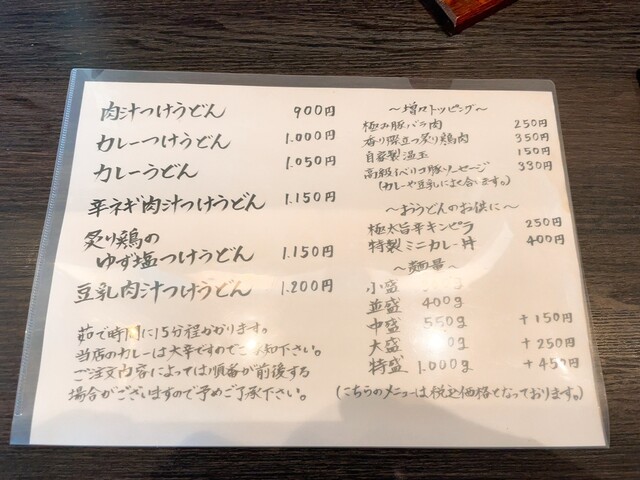 肉汁つけうどん 900円
カレーつけうどん 1.000円
カレーうどん 1.050円
辛ネギ肉汁つけうどん 1.150円
炙り鶏の
ゆず塩つけうどん 1.150円
豆乳肉汁つけうどん 1.200円
茹で時間に15分程かかります。
当店のカレーは大辛ですのでご承知下さい。
ご注文内容によっては順番が前後する
場合がございますので予めご了承下さい。
～増々トッピング～
極み豚バラ肉 250円
香り際立つ炙り鶏肉 350円
自家製温玉 150円
高級イベリコ豚ソーセージ 330円
(カレーや豆乳によく合います。)
～おうどんのお供に～
極太旨辛キンピラ 250円
特製ミニカレー丼 400円
～麺量～
小盛
並盛 400g
中盛 550g +150円
大盛 +250円
特盛 1.000g +450円
(こちらのメニューは税込価格となっております。)